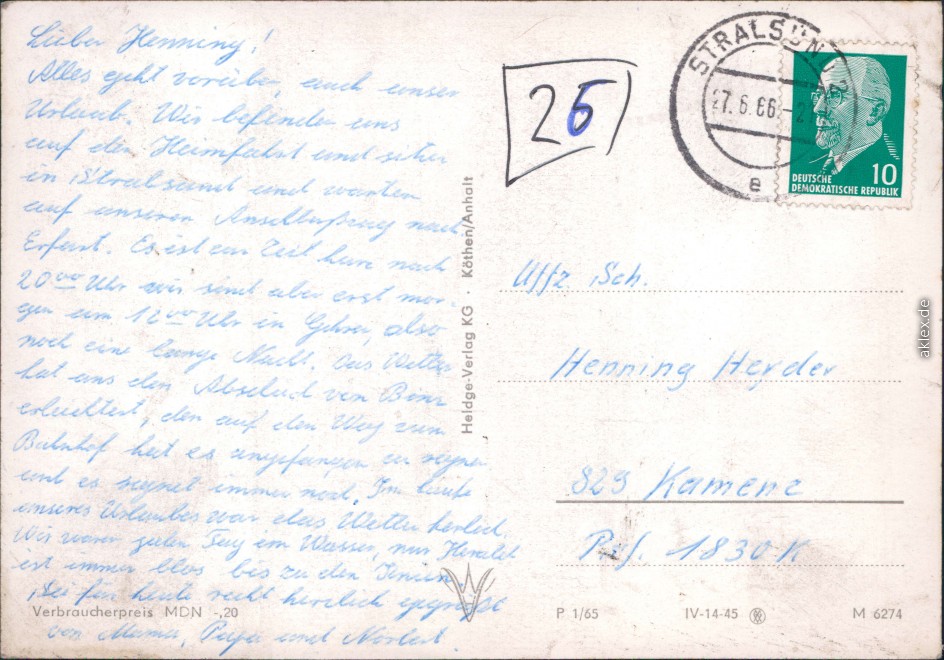 Lieber Henning!
Alles geht vorüber, auch unser
Urlaub. Wir befinden uns
auf der Heimfahrt und sitzen
in Stralsund und warten
auf unseren Anschlußzug nach
Erfurt. Es ist zur Zeit kurz nach
20⁰⁰ Uhr wir sind aber erst mor-
gen um 12⁰⁰ Uhr in Gehren, also
noch eine lange Nacht. Das Wetter
hat uns den Abschied von Binz
erleichtert, denn auf dem Weg zum
Bahnhof hat es angefangen zu regnen
und es regnet immer noch. Im Laufe
unseres Urlaubes war das Wetter herlich.
Wir waren jeden Tag am Wasser, nur Harald
ist immer blos bis zu den
Sei für heute recht herzlich gegrüßt
von Mama, Papa und Norbert.
Verbraucherpreis MDN -,20
Heldge-Verlag KG · Köthen/Anhalt
26
STRALSUND 2
27.6.66.-21
e
10
DEUTSCHE
DEMOKRATISCHE REPUBLIK
Uffz. Sch.
Henning Heyder
829 Kamenz
Psf. 1830 K
P 1/65 IV-14-45 M 6274
aklex.de